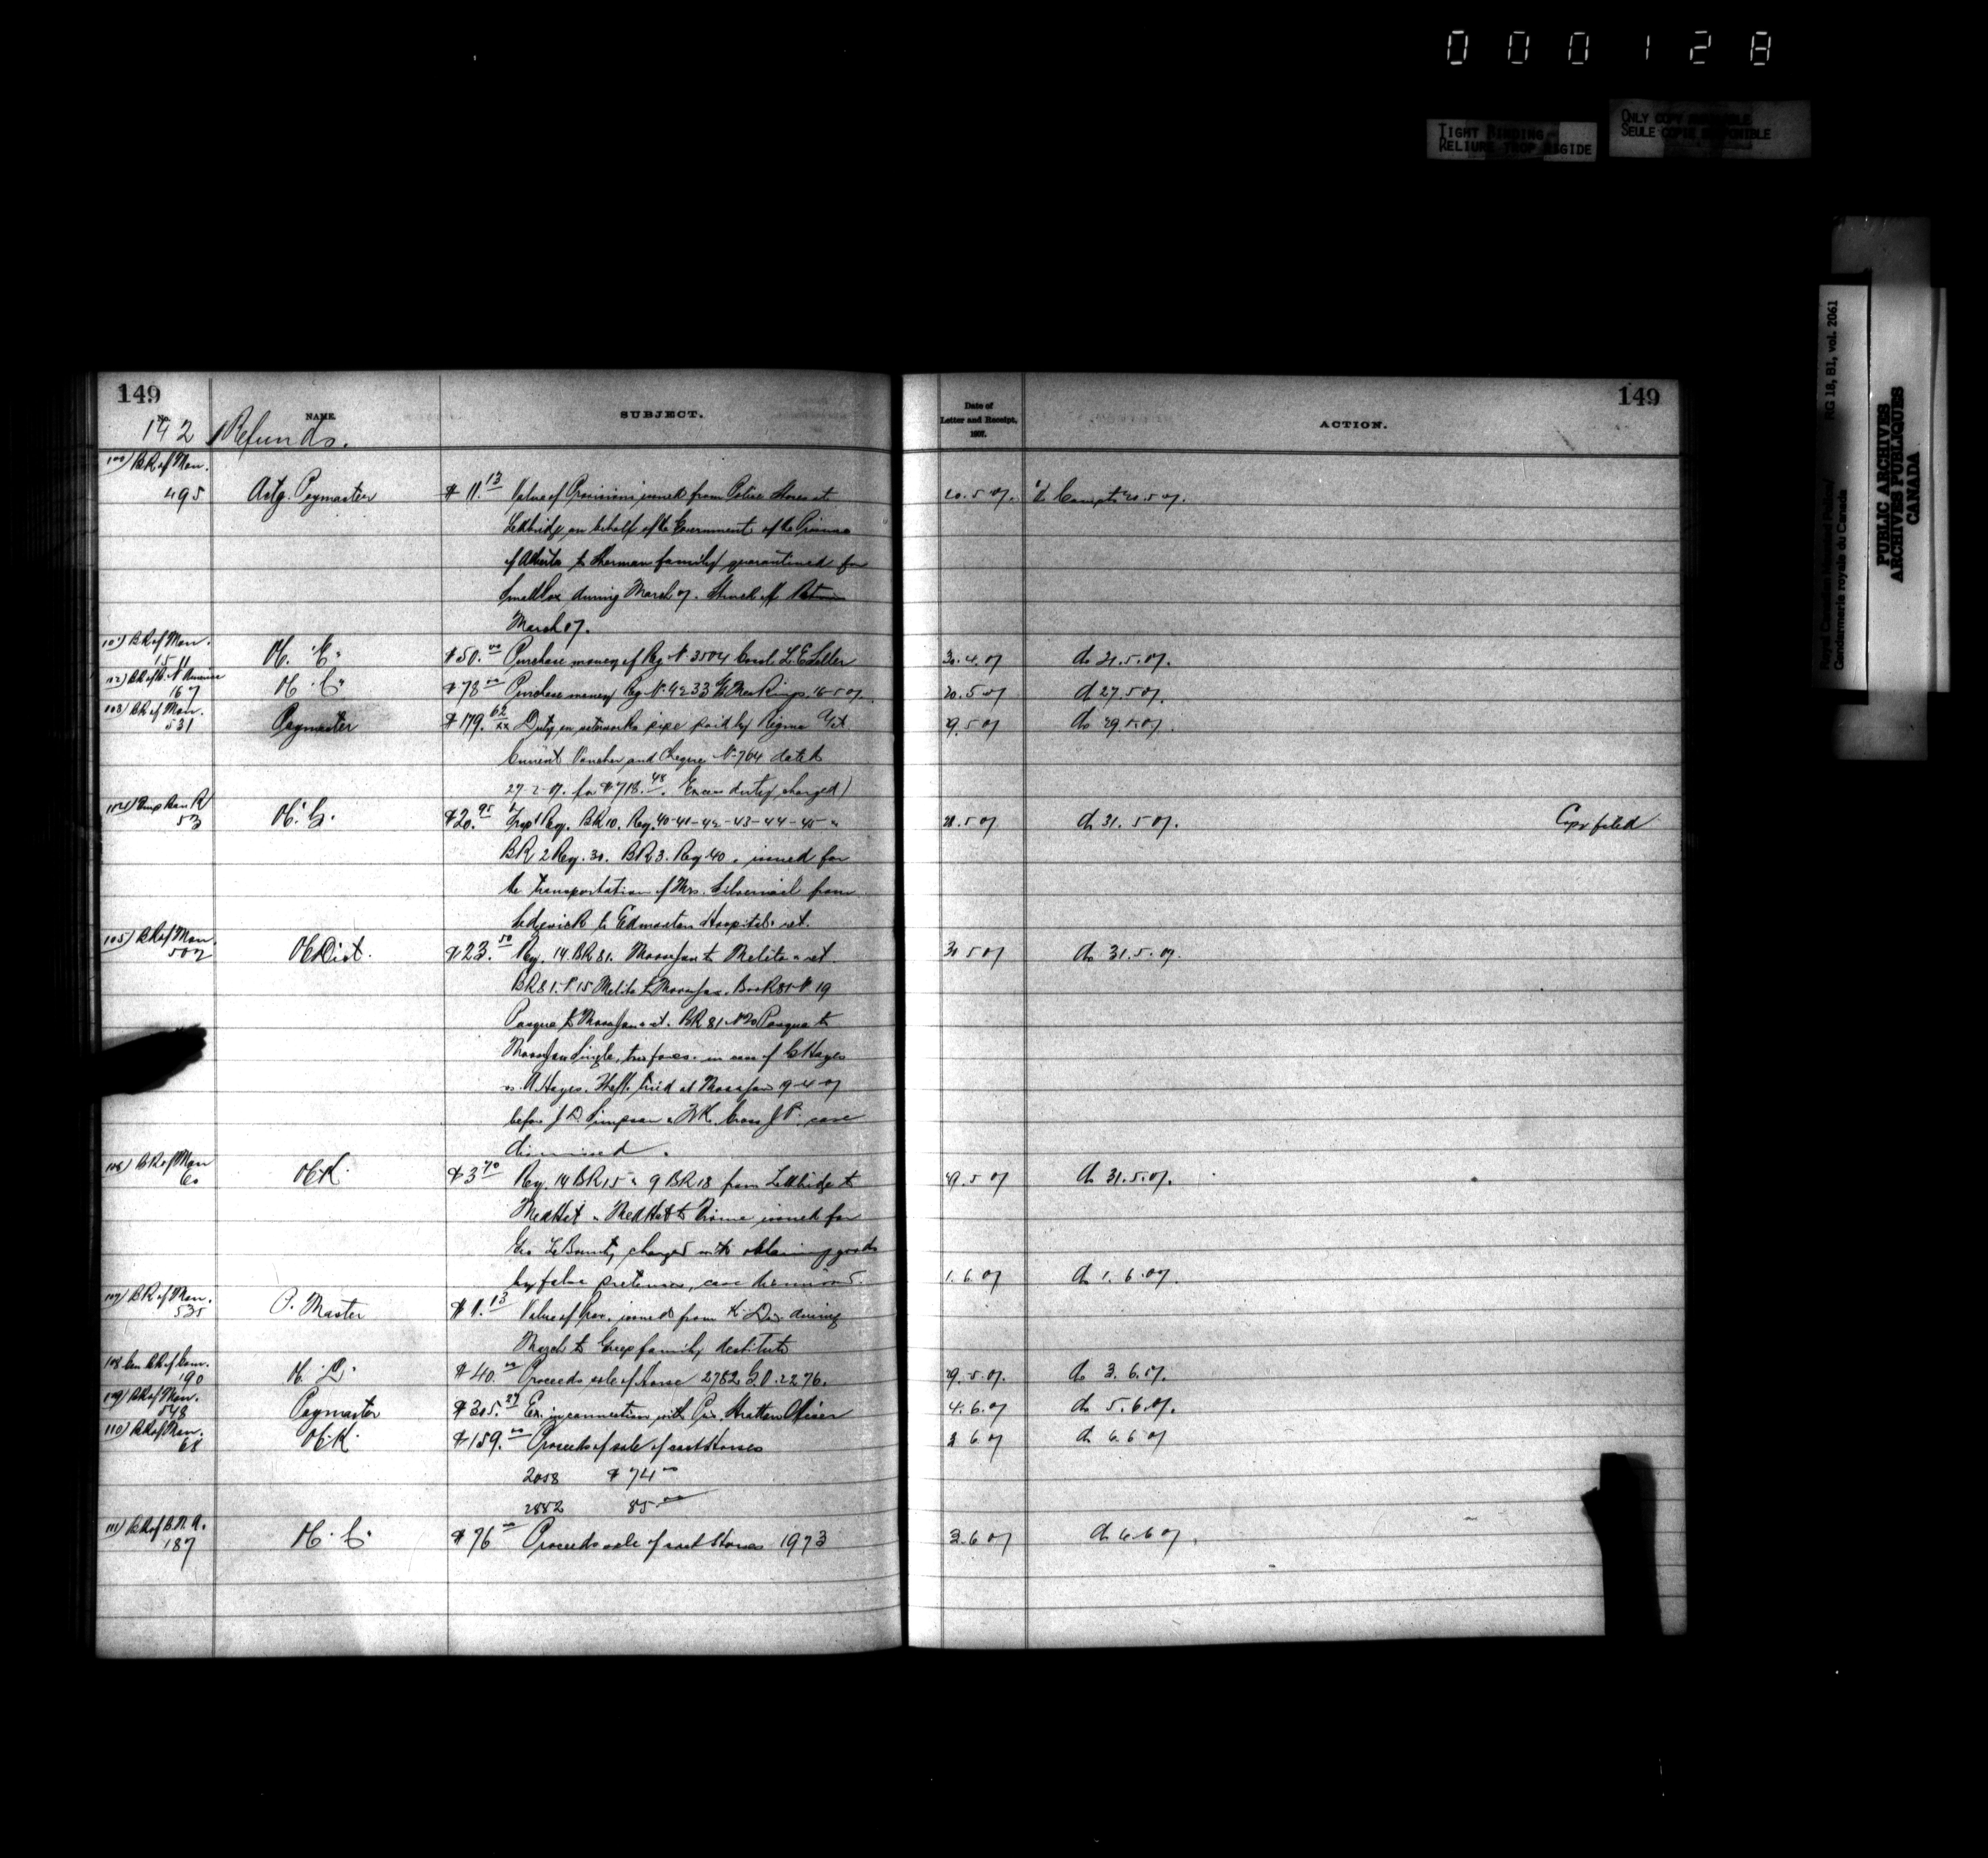 000128
TIGHT BINDING
RELIURE TROP RIGIDE
ONLY COPY AVAILABLE
SEULE COPIE DISPONIBLE
Royal Canadian Mounted Police/ RG 18, B1, vol. 2061
Gendarmerie royale du Canada
PUBLIC ARCHIVES
ARCHIVES PUBLIQUES
CANADA
149
No. NAME. SUBJECT.
192 Refunds.
149
Date of
Letter and Receipt,
1907.
ACTION.
100) BK of Mon.
495 Actg. Paymaster $11.13 Value of Provisions issued from Police Stores at 20.5.07. Compt 20.5.07.
Lethbridge on behalf of the Government of the Province
of Alberta to Sherman family quarantined for
Smallpox during March 07. Struck off Return
March 07.
101) BK of Mon.
1511 O.C. "C" $50.00 Purchase money of Reg. No. 3504 Corpl. L.E. 30.4.07 do 21.5.07.
102) BK of B. N America
167 O.C. "C" $78.00 Purchase money Reg. No. 4233 16-5-07. 20.5.07 do 27.5.07.
103) BK of Mon.
531 Paymaster $179.62 Duty on waterworks pipe paid by Regina 29.5.07 do 29.5.07.
Current Voucher and Cheque No. 764 dated
27-2-07. for $718.48. Excess duty charged)
104) Imp Ban K
53 O.C. G. $20.95 Reg. BK 10. Reg. 40-41-42-43-44-45 " 28.5.07 do 31.5.07. Copy filed
BK 2 Reg. 30. BK 3. Reg 40. issued for
the transportation of Mrs. from
Sedgwick to Edmonton Hospital ret.
105) BK of Mon.
507 O.C. Dist. $23.50 Reg. 14. BK 81. Moosejaw to Melita ret. 30.5.07 do 31.5.07.
BK 81. No 15 Melita to Moosejaw. Book 81 No 19
Pasqua to Moosejaw ret. BK 81 No 20 Pasqua to
Moosejaw Single, two fares. in case of C Hayes
vs. A. Hayes. Theft. tried at Moosejaw 9-4-07
before J. D. Simpson & Cross J.P. case
dismissed.
106) BK of Mon
60 O.C. K. $3.70 Reg. 14 BK 15 & 9 BK 18 from Lethbridge to 29.5.07 do 31.5.07.
Med Hat & Med Hat to issued for
Geo charged with obtaining goods
by false pretences, case dismissed. 1.6.07 do 1.6.07.
107) BK of Mon.
535 P. Master $11.13 Value of Prov. issued from K Div. during
March to family destitute
108 Can BK of Com.
190 O.C. D. $40.00 Proceeds sale of horse 2782 G.O. 2276. 29.5.07. do 3.6.07.
109) BK of Mon.
548 Paymaster $305.27 Ex. in connection with 4.6.07 do 5.6.07.
110) BK of Mon.
61 O.C. K. $159.00 Proceeds of sale of cast Horses 3.6.07 do 6.6.07
2058 $74.00
2882 85.00
111) BK of B.N.A.
187 O.C. C. $76.00 Proceeds sale of cast Horse 1973 3.6.07 do 6.6.07.